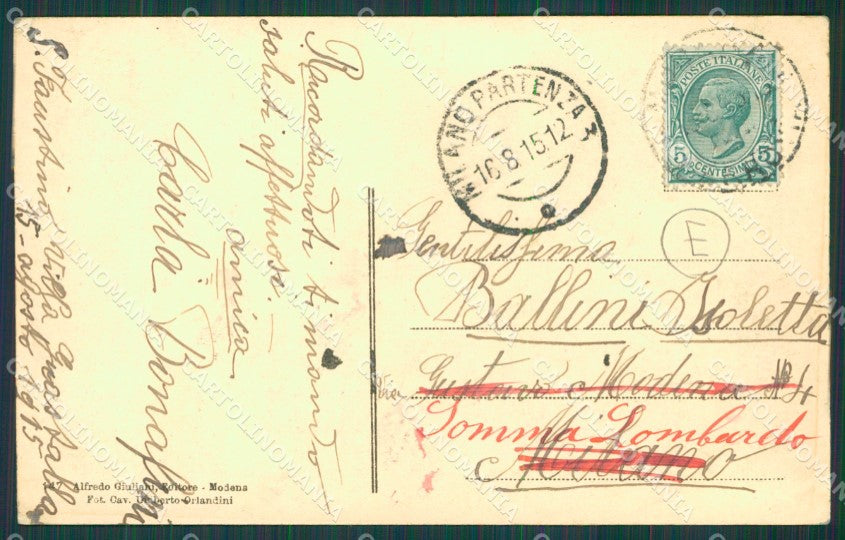 Ricordandoti ti mando
saluti affettuosi.
amica
Carla
S. Faustino Villa
15 - agosto 1915
147 Alfredo Giuliani, Editore - Modena
Fot. Cav. Umberto Orlandini
MILANO PARTENZA 3
16 8 15 12
POSTE ITALIANE
5 CENTESIMI 5
E
Gentilissima
Ballini Isoletta
Via Gustavo Modena No 4
Somma Lombardo
Milano